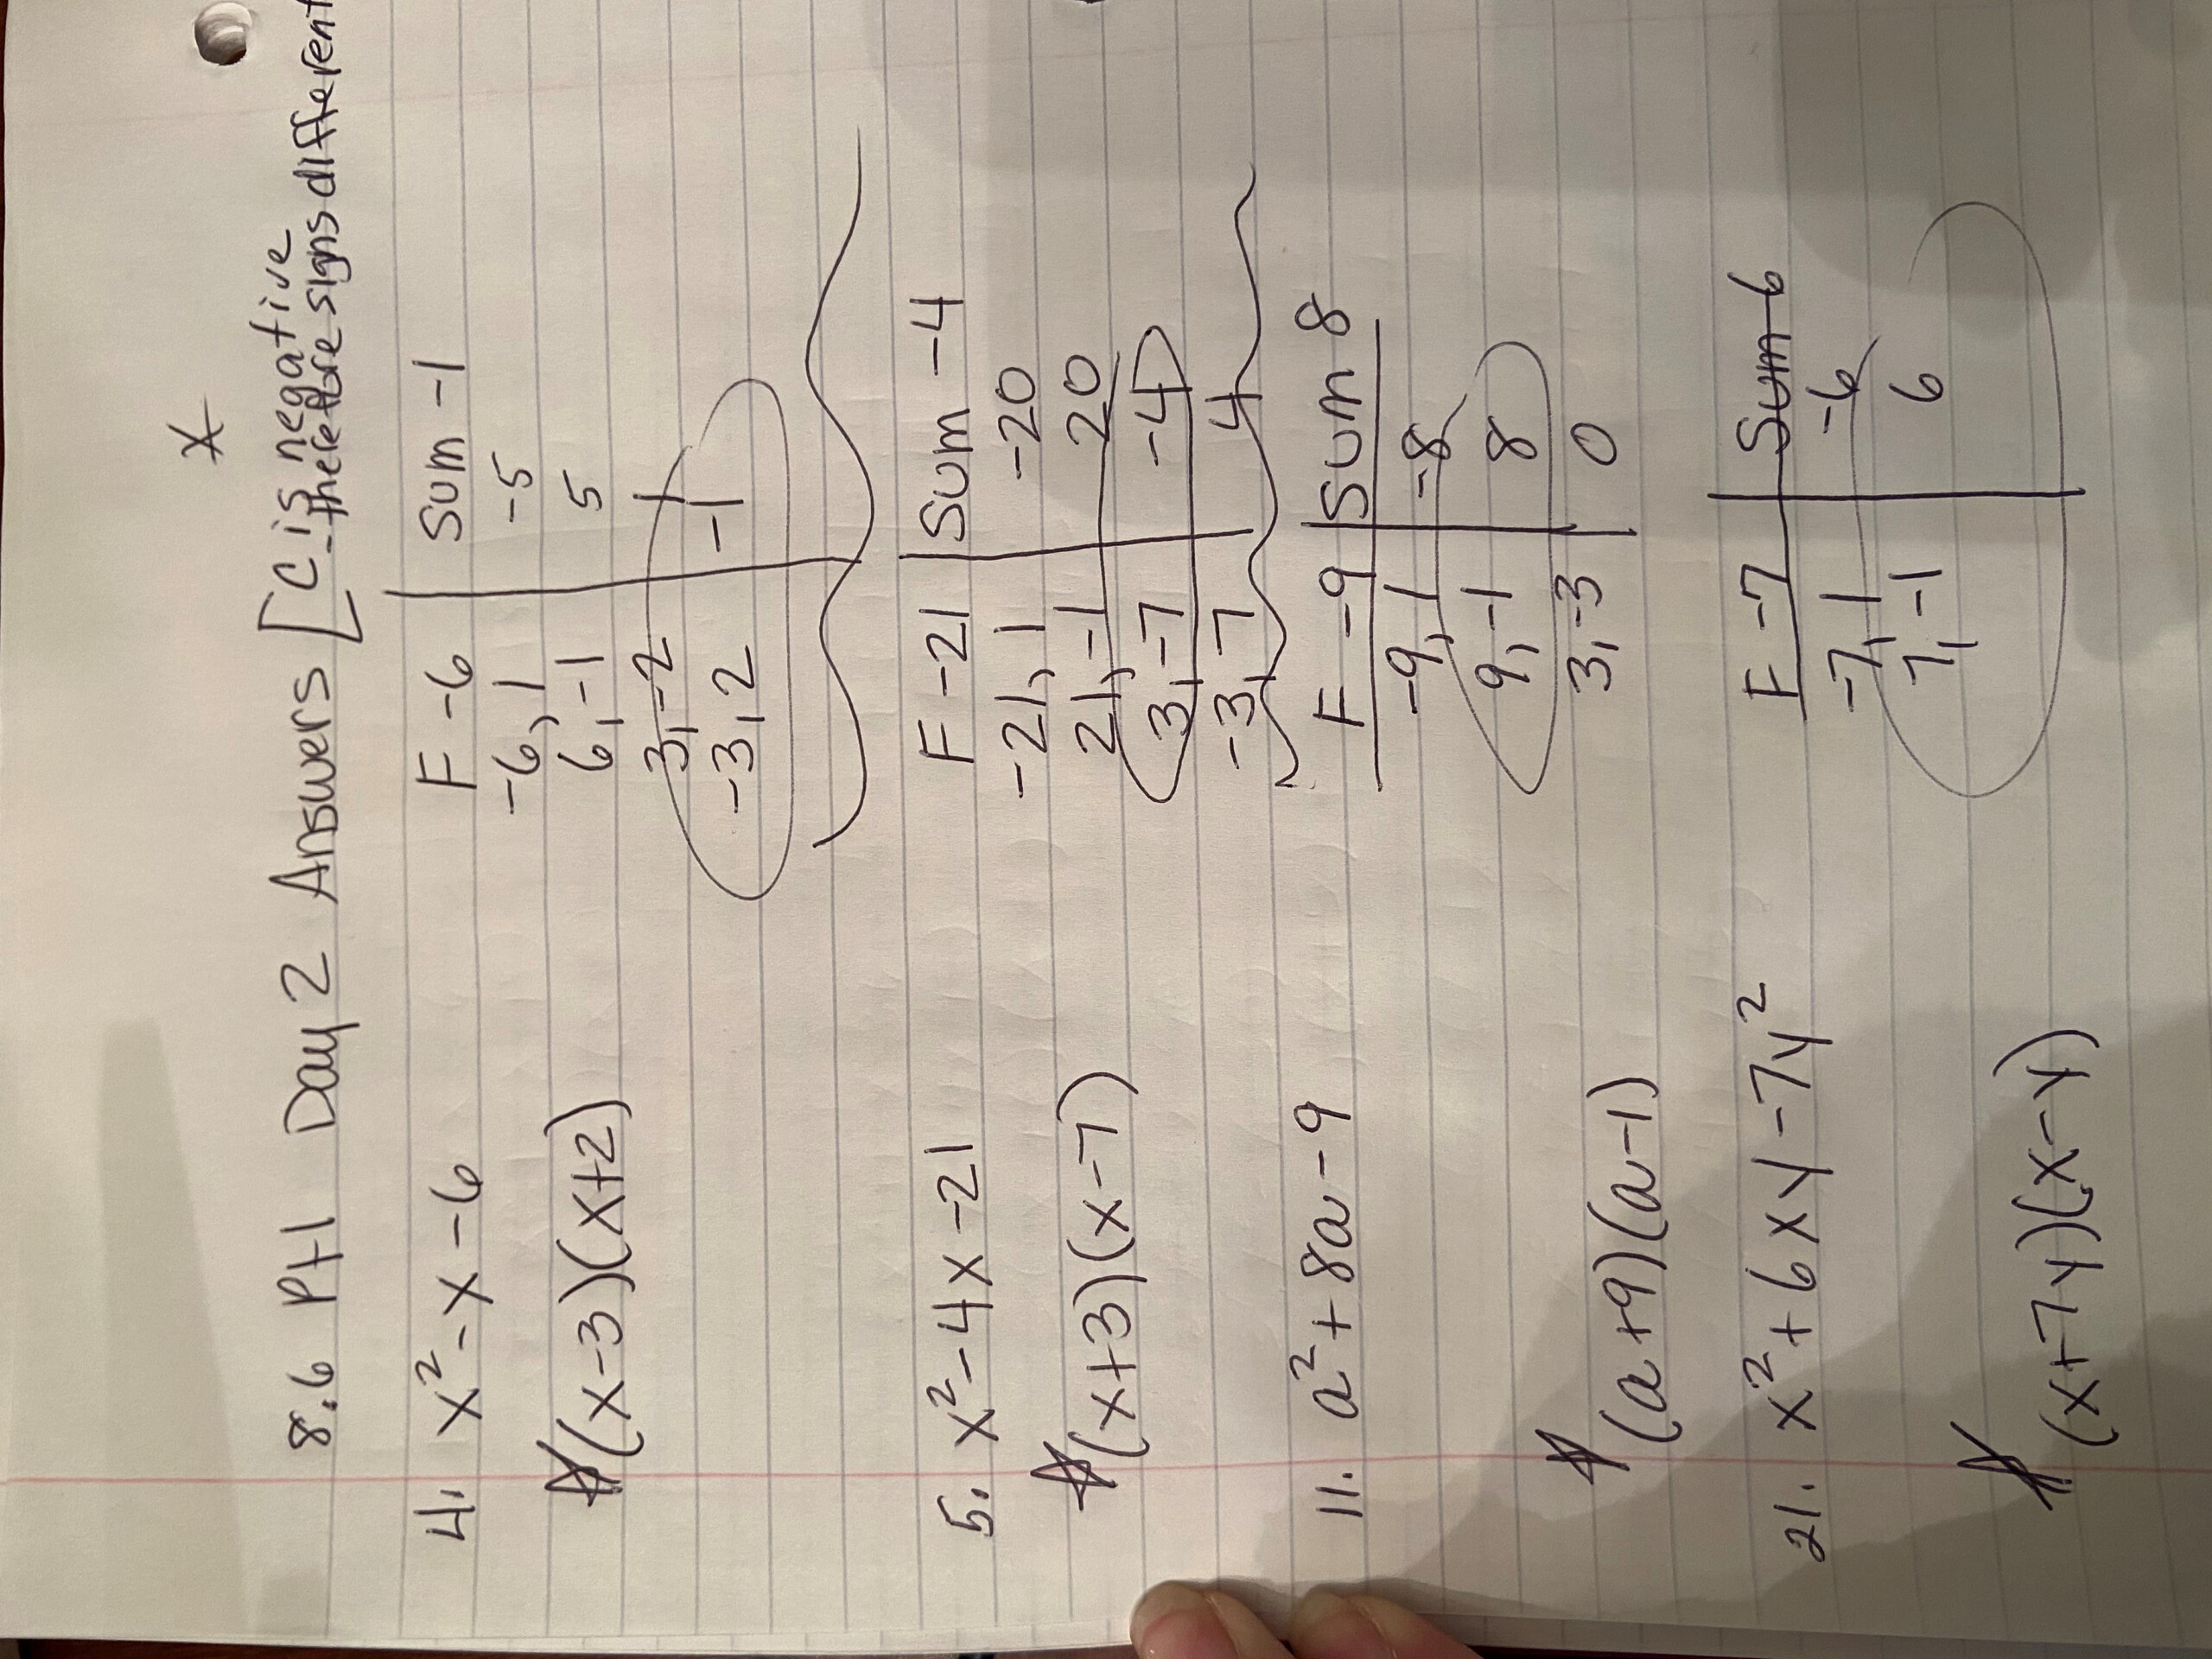 *
8.6 Pt1 Day 2 Answers [C is negative
- therefore signs different
4. x² - x - 6
F -6 | Sum -1
-6, 1 | -5
6, -1 | 5
3, -2 | 1
-3, 2 | -1
*(x-3)(x+2)
5. x² - 4x - 21
F -21 | Sum -4
-21, 1 | -20
21, -1 | 20
3, -7 | -4
-3, 7 | 4
*(x+3)(x-7)
11. a² + 8a - 9
F -9 | Sum 8
-9, 1 | -8
9, -1 | 8
3, -3 | 0
*(a+9)(a-1)
21. x² + 6xy - 7y²
F -7 | Sum 6
-7, 1 | -6
7, -1 | 6
*(x+7y)(x-y)